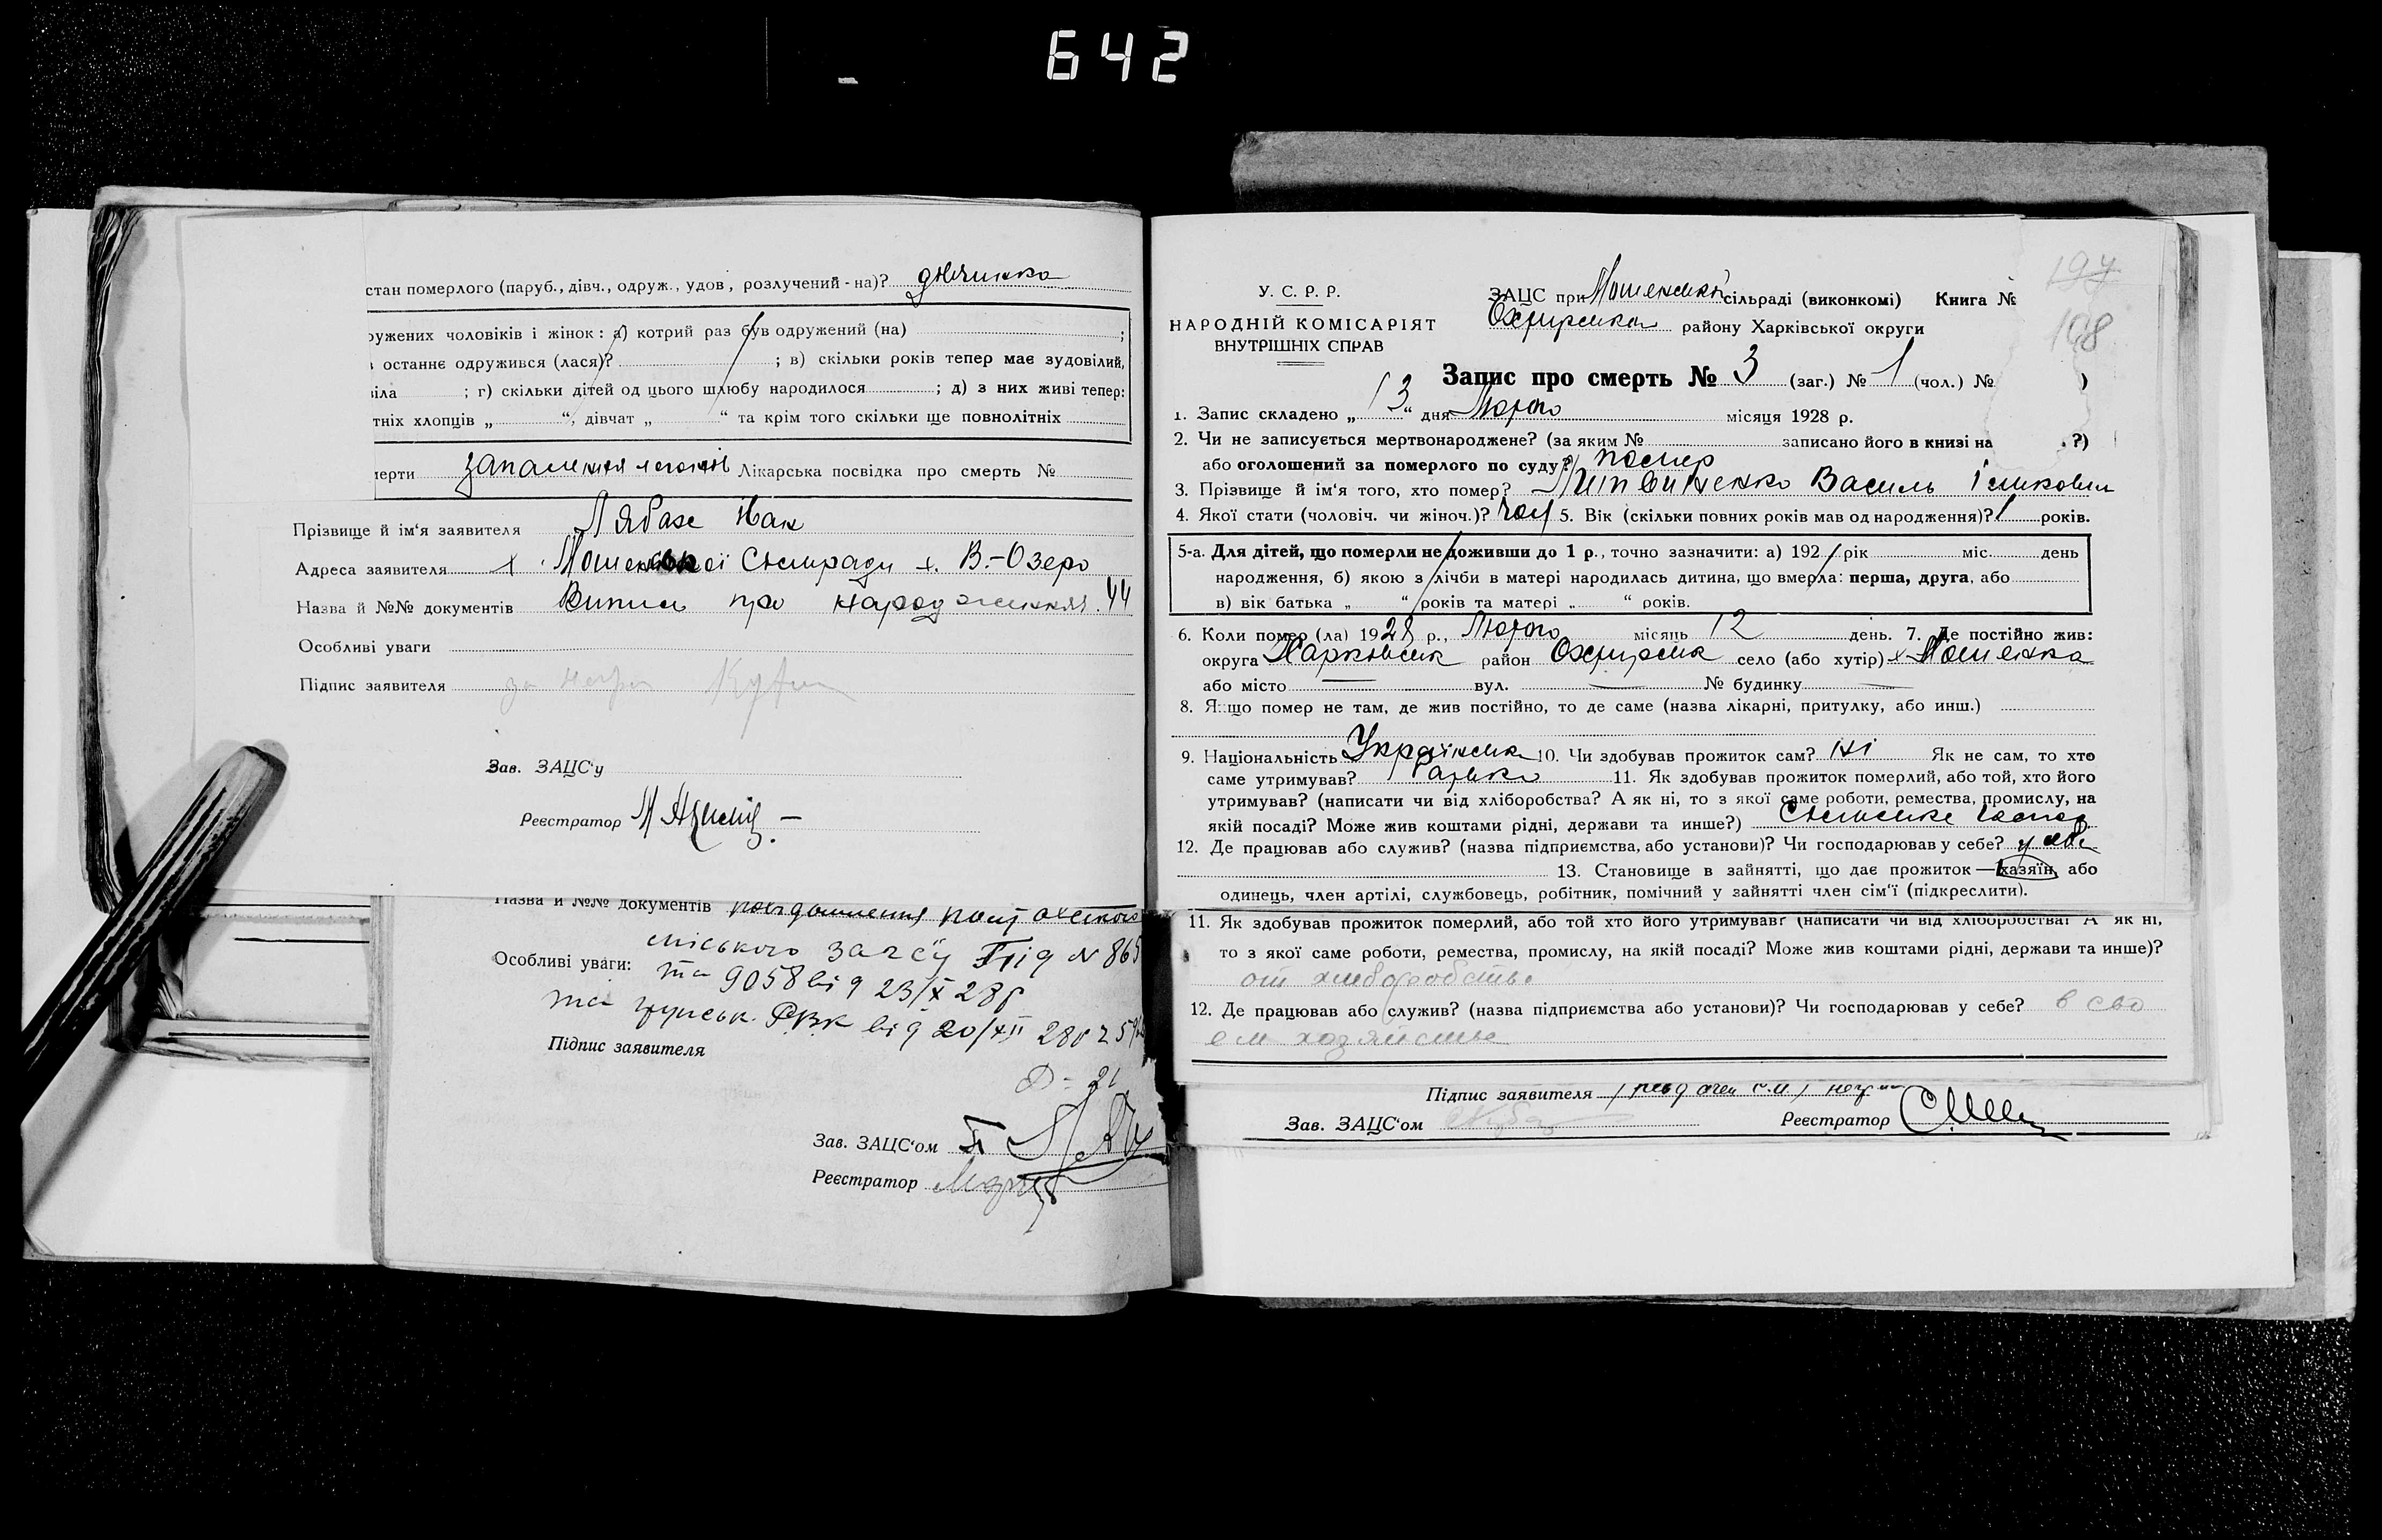 642
стан померлого (паруб., дівч., одруж., удов., розлучений - на)? дівчинка
ружених чоловіків і жінок: а) котрий раз був одружений (на) ;
останнє одружився (лася)? ; в) скільки років тепер має зудовілий,
віла ; г) скільки дітей од цього шлюбу народилося ; д) з них живі тепер:
тніх хлопців „ “, дівчат „ “ та крім того скільки ще повнолітніх
мерти запалення легенів Лікарська посвідка про смерть №
Прізвище й ім'я заявителя Лябах Іван
Адреса заявителя х. Мошенської Сільради х. В.-Озеро
Назва й №№ документів Виписи про народження 44
Особливі уваги
Підпис заявителя за негр
Зав. ЗАЦС'у
Реєстратор
Назва й №№ документів повідомлення
Особливі уваги: міського загсу від № 865
та 9058 від 23/X 28р
та РВК від 20/XII 28р
Підпис заявителя
Зав. ЗАЦС'ом
Реєстратор
197
198
У. С. Р. Р.
НАРОДНІЙ КОМІСАРІЯТ
ВНУТРІШНІХ СПРАВ
ЗАЦС при Мошенській сільраді (виконкомі) Книга №
Охтирська району Харківської округи
Запис про смерть № 3 (заг.) № 1 (чол.) № )
1. Запис складено „ 13 “ дня Лютого місяця 1928 р.
2. Чи не записується мертвонароджене? (за яким № записано його в книзі на .?)
або оголошений за померлого по суду? помер
3. Прізвище й ім'я того, хто помер? Литвиненко Василь
4. Якої стати (чоловіч. чи жіноч.)? чол 5. Вік (скільки повних років мав од народження)? 1 років.
5-а. Для дітей, що померли не доживши до 1 р., точно зазначити: а) 192 рік міс. день
народження, б) якою з лічби в матері народилась дитина, що вмерла: перша, друга, або
в) вік батька „ “ років та матері „ “ років.
6. Коли помер (ла) 1928 р., Лютого місяць 12 день. 7. Де постійно жив:
округа Харківськ район Охтирськ село (або хутір) х Мошенка
або місто — вул. — № будинку —
8. Якщо помер не там, де жив постійно, то де саме (назва лікарні, притулку, або инш.)
9. Національність Українськ 10. Чи здобував прожиток сам? ні Як не сам, то хто
саме утримував? батько 11. Як здобував прожиток померлий, або той, хто його
утримував? (написати чи від хліборобства? А як ні, то з якої саме роботи, ремества, промислу, на
якій посаді? Може жив коштами рідні, держави та инше?) Сільське господ
12. Де працював або служив? (назва підприємства, або установи)? Чи господарював у себе? у себе
13. Становище в зайнятті, що дає прожиток — хазяїн, або
одинець, член артілі, службовець, робітник, помічний у зайнятті член сім'ї (підкреслити).
11. Як здобував прожиток померлий, або той хто його утримував? (написати чи від хліборобства? А як ні,
то з якої саме роботи, ремества, промислу, на якій посаді? Може жив коштами рідні, держави та инше)?
от хлеборобства
12. Де працював або служив? (назва підприємства або установи)? Чи господарював у себе? в сво
ем хозяйстве
Підпис заявителя
Зав. ЗАЦС'ом Реєстратор